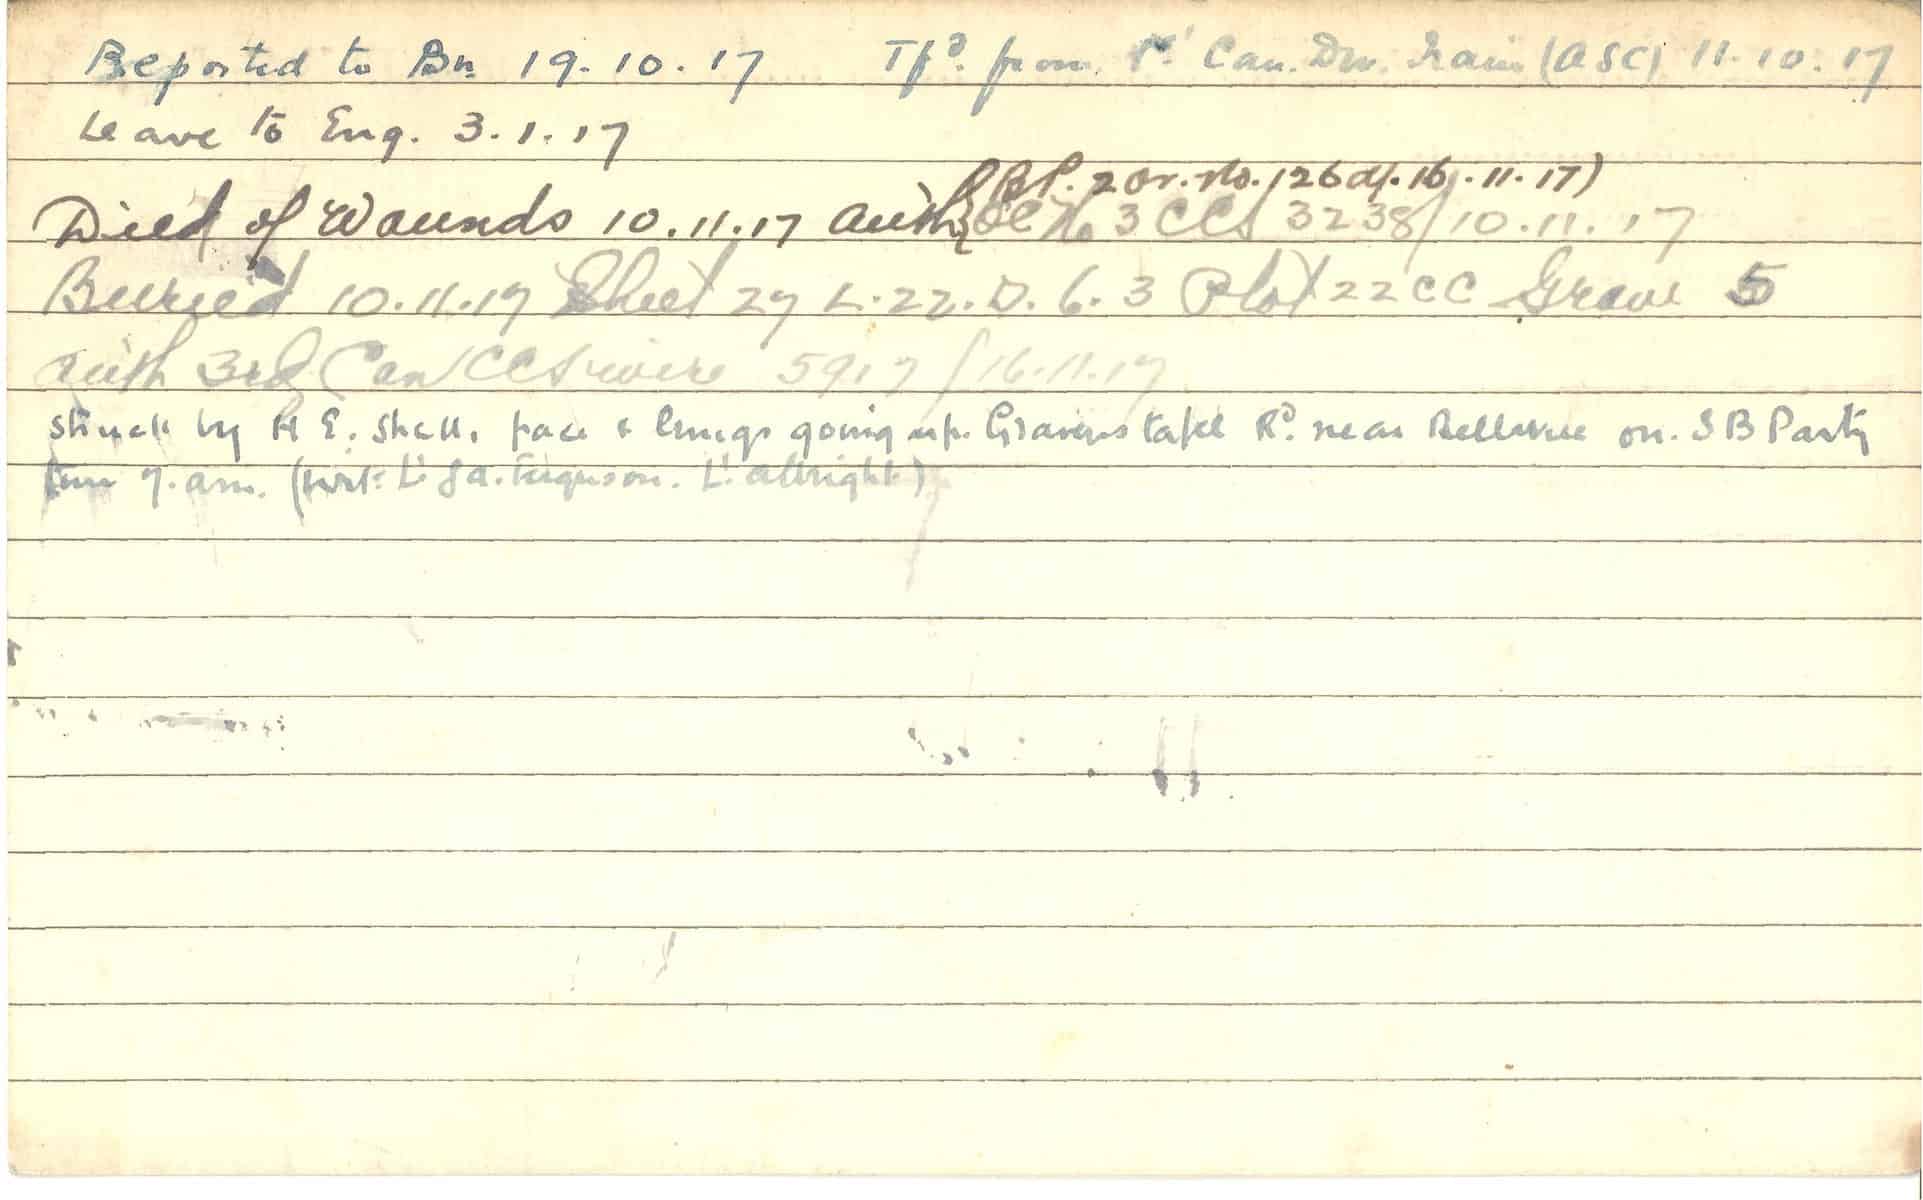 Reported to Bn. 19.10.17 Tfd. from 1st Can. Div. Train (ASC) 11.10.17
Leave to Eng. 3.1.17
(B.P. 2 Or. No. 126 d/. 16.11.17)
Died of Wounds 10.11.17 Auth OC No 3 CCS 3238/10.11.17
Burried 10.11.17 Sheet 27 L.22.D.6.3 Plot 22 CC Grave 5
Auth 3rd Can CCS wire 5917/16.11.17
struck by H E. shell, face & lungs going up Gravenstafel Rd. near Bellevue on. S B Party
7. am. Lt J A. Ferguson. Lt. Albright)